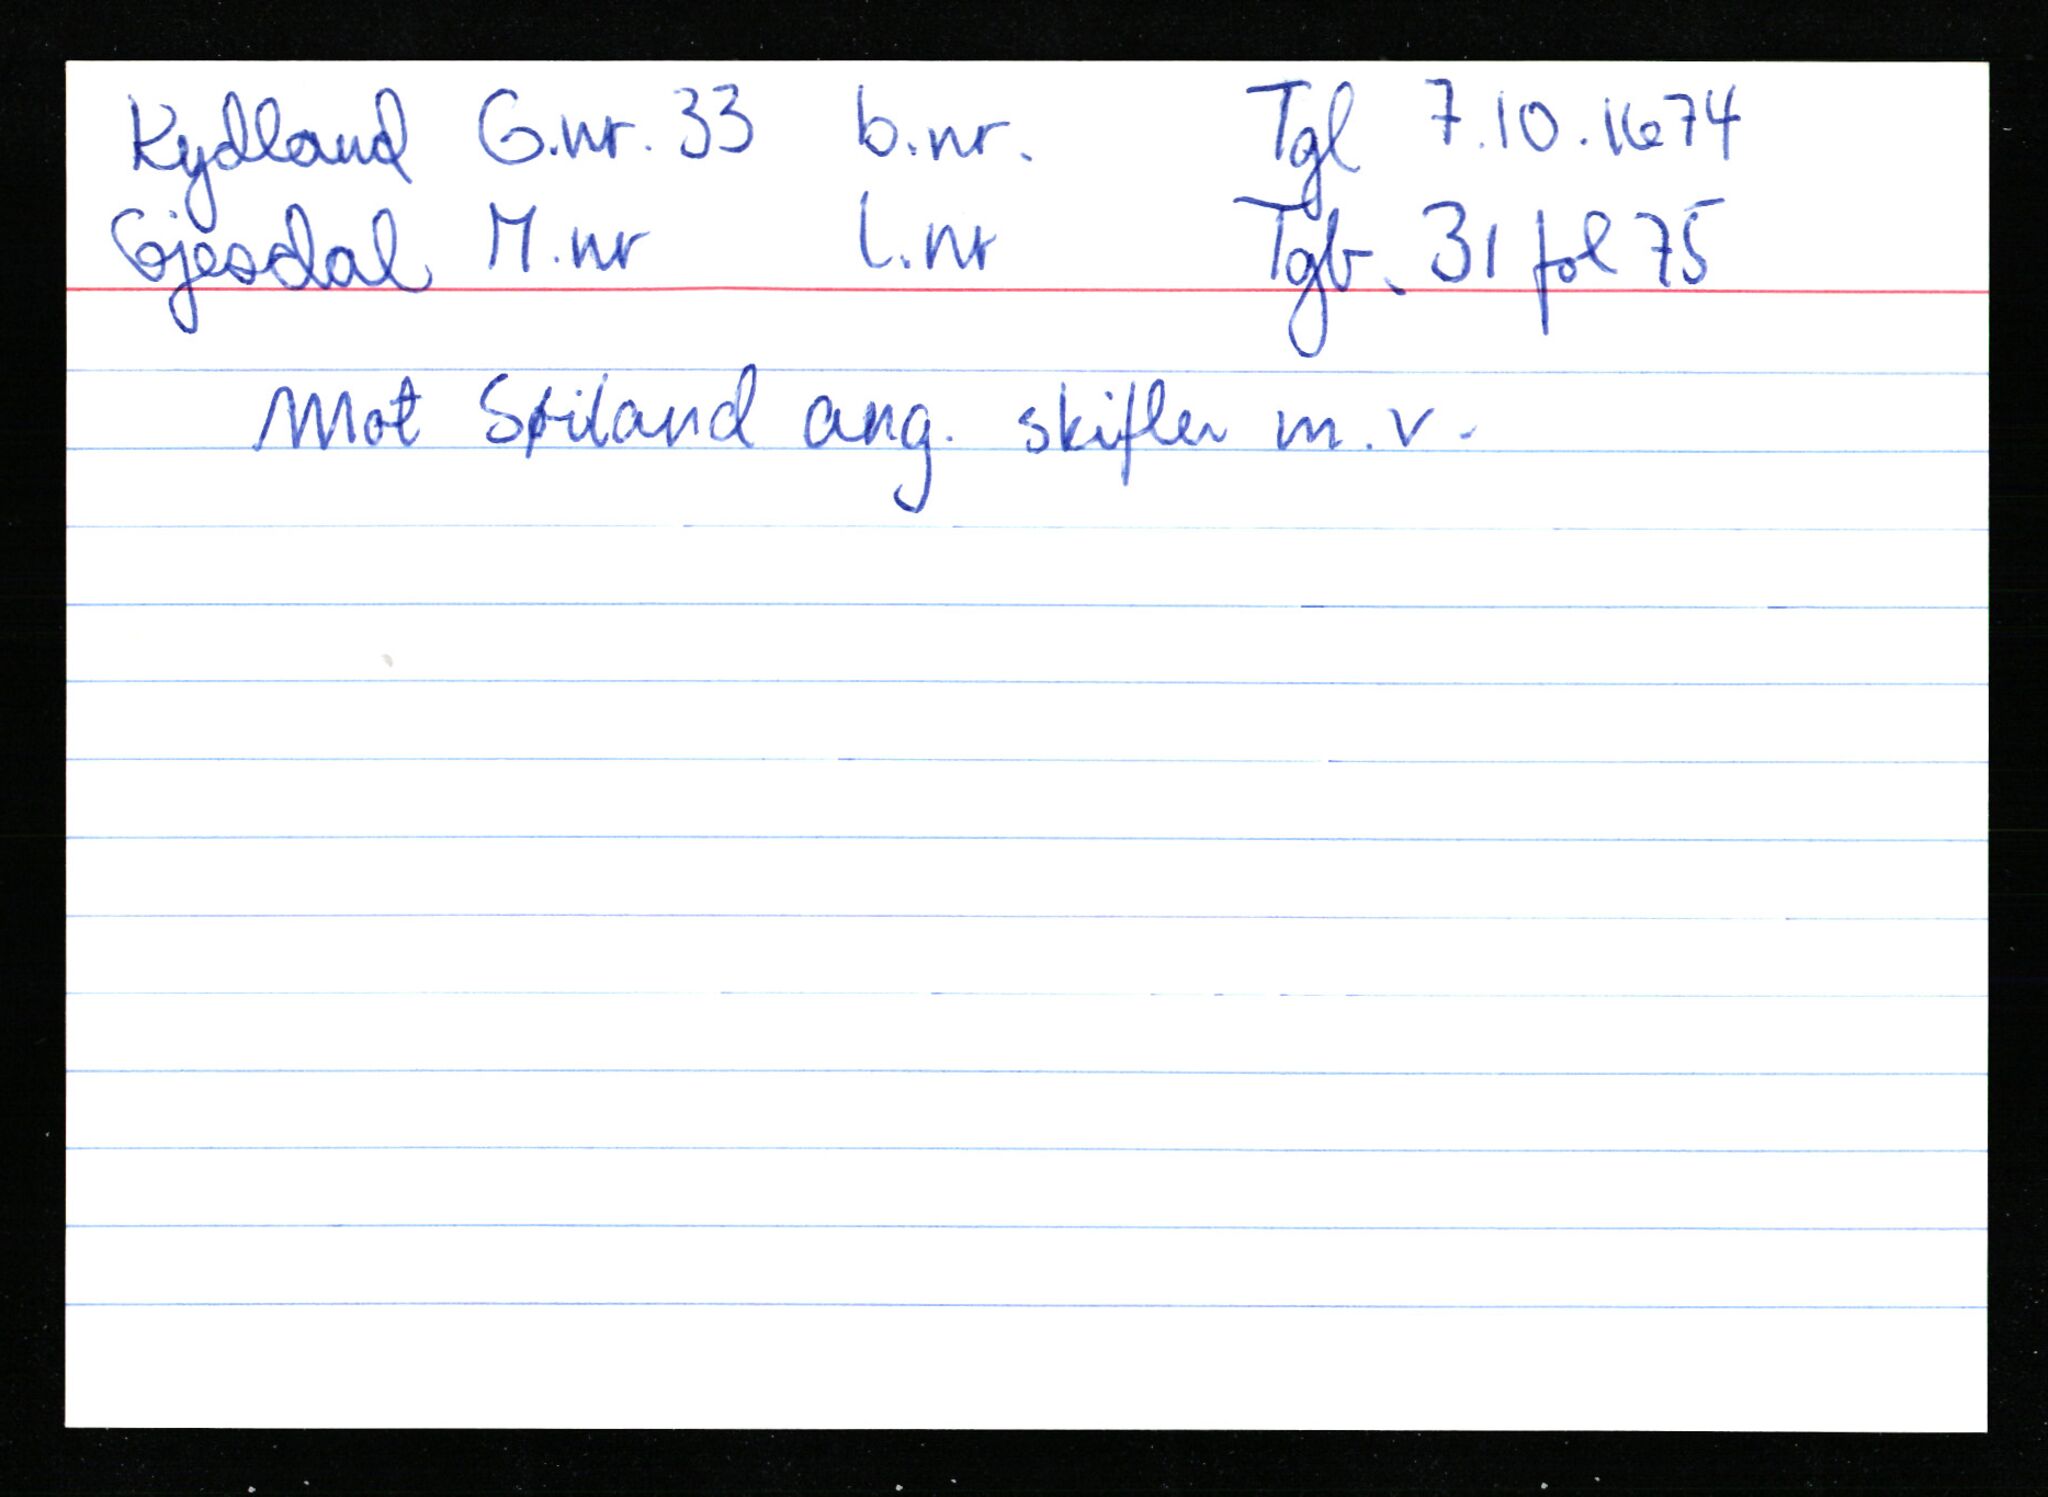 Kydland G.nr. 33 b.nr. Tgl 7.10.1674
Gjesdal M.nr l.nr Tgb. 31 fol 75
Mot ang. m.v.